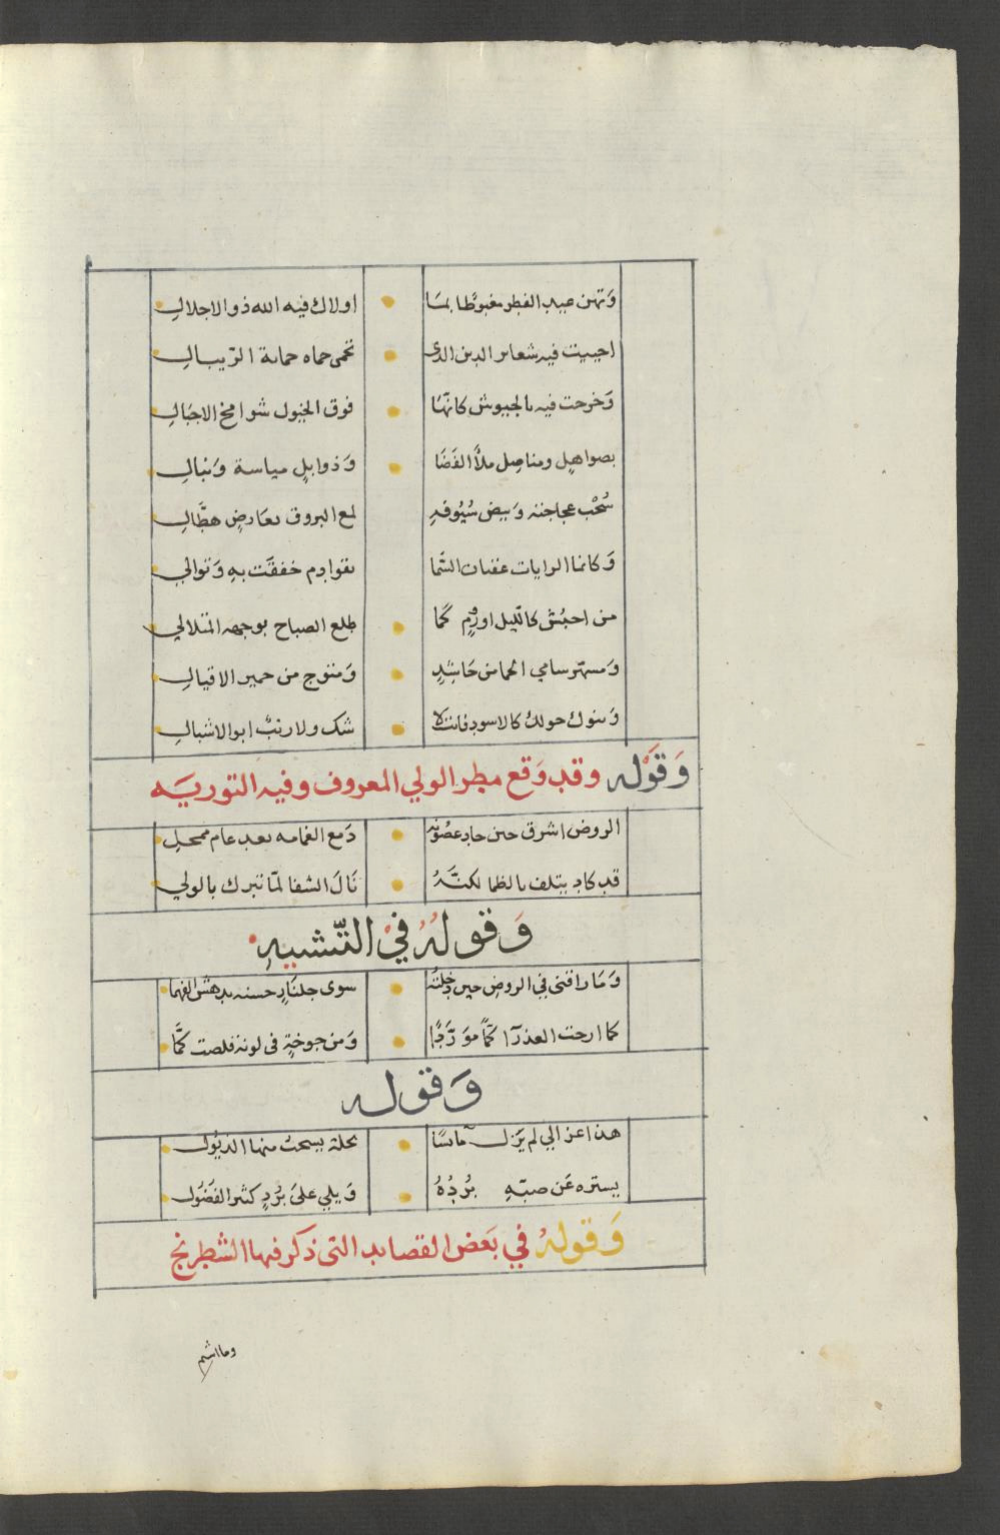 وَتهن عيد الفطر مغبوطا بمَا اولاك فيه الله ذو الاجلالِ
احييت فيه شعاير الدين الذى تحمى حماه حماية الرّيبالِ
وَخرجت فيه بالجيوش كانهَا فوق الخيول شوامخ الاجبَالِ
بصواهلٍ ومناصِل ملأ الفَضَا وَذوابلٍ مياسة وَنبالِ
سُحْب عجاجته وَبيض سُيُوفهِ لمع البروق بعَارضٍ هطَّالِ
وَكانما الرايات عقبان السَّما بقوادِم خفقَت بهِ وَتوالي
من احبُش كالليل او رومٍ كَما طلع الصباح بوجهه المتلالي
وَمسهّر سامي الحما من حَاشِدٍ وَمتوج من حمير الاقيالِ
وَبنوك حولك كالاسود فانت لا شك ولا ريبٌ ابو الاشبالِ
وَقوَله وقد وَقع مطر الولي المعروف وفيه التوريَه
الروض اشرق حين جاد غصُونه دَمع الغمامه بعد عام ممحلِ
قد كاد يتلف بالظما لكنَّهُ نَالَ الشفا لمّا تبرك بالولي
وَقولهُ فيْ التّشبيهِ
وَمَا راقنى فِي الروضِ حين دخلتُهُ سوى جلنارٍ حسنه يدهش الفهما
كما ارخت العذرآ كمّاً موَرّدًا وَمن جوخةٍ فى لونه قلصت كمَّا
وَقوله
هذا غزالي لم يَزل مآيسًا بحلة يسحبُ منها الذيُول
يستره عَن صبّهِ بُردُهُ وَيلي علىَ بُردٍ كثير الفُضُول
وَقولهُ في بَعض القصايد التى ذكر فيها الشطرنج
وما اشم